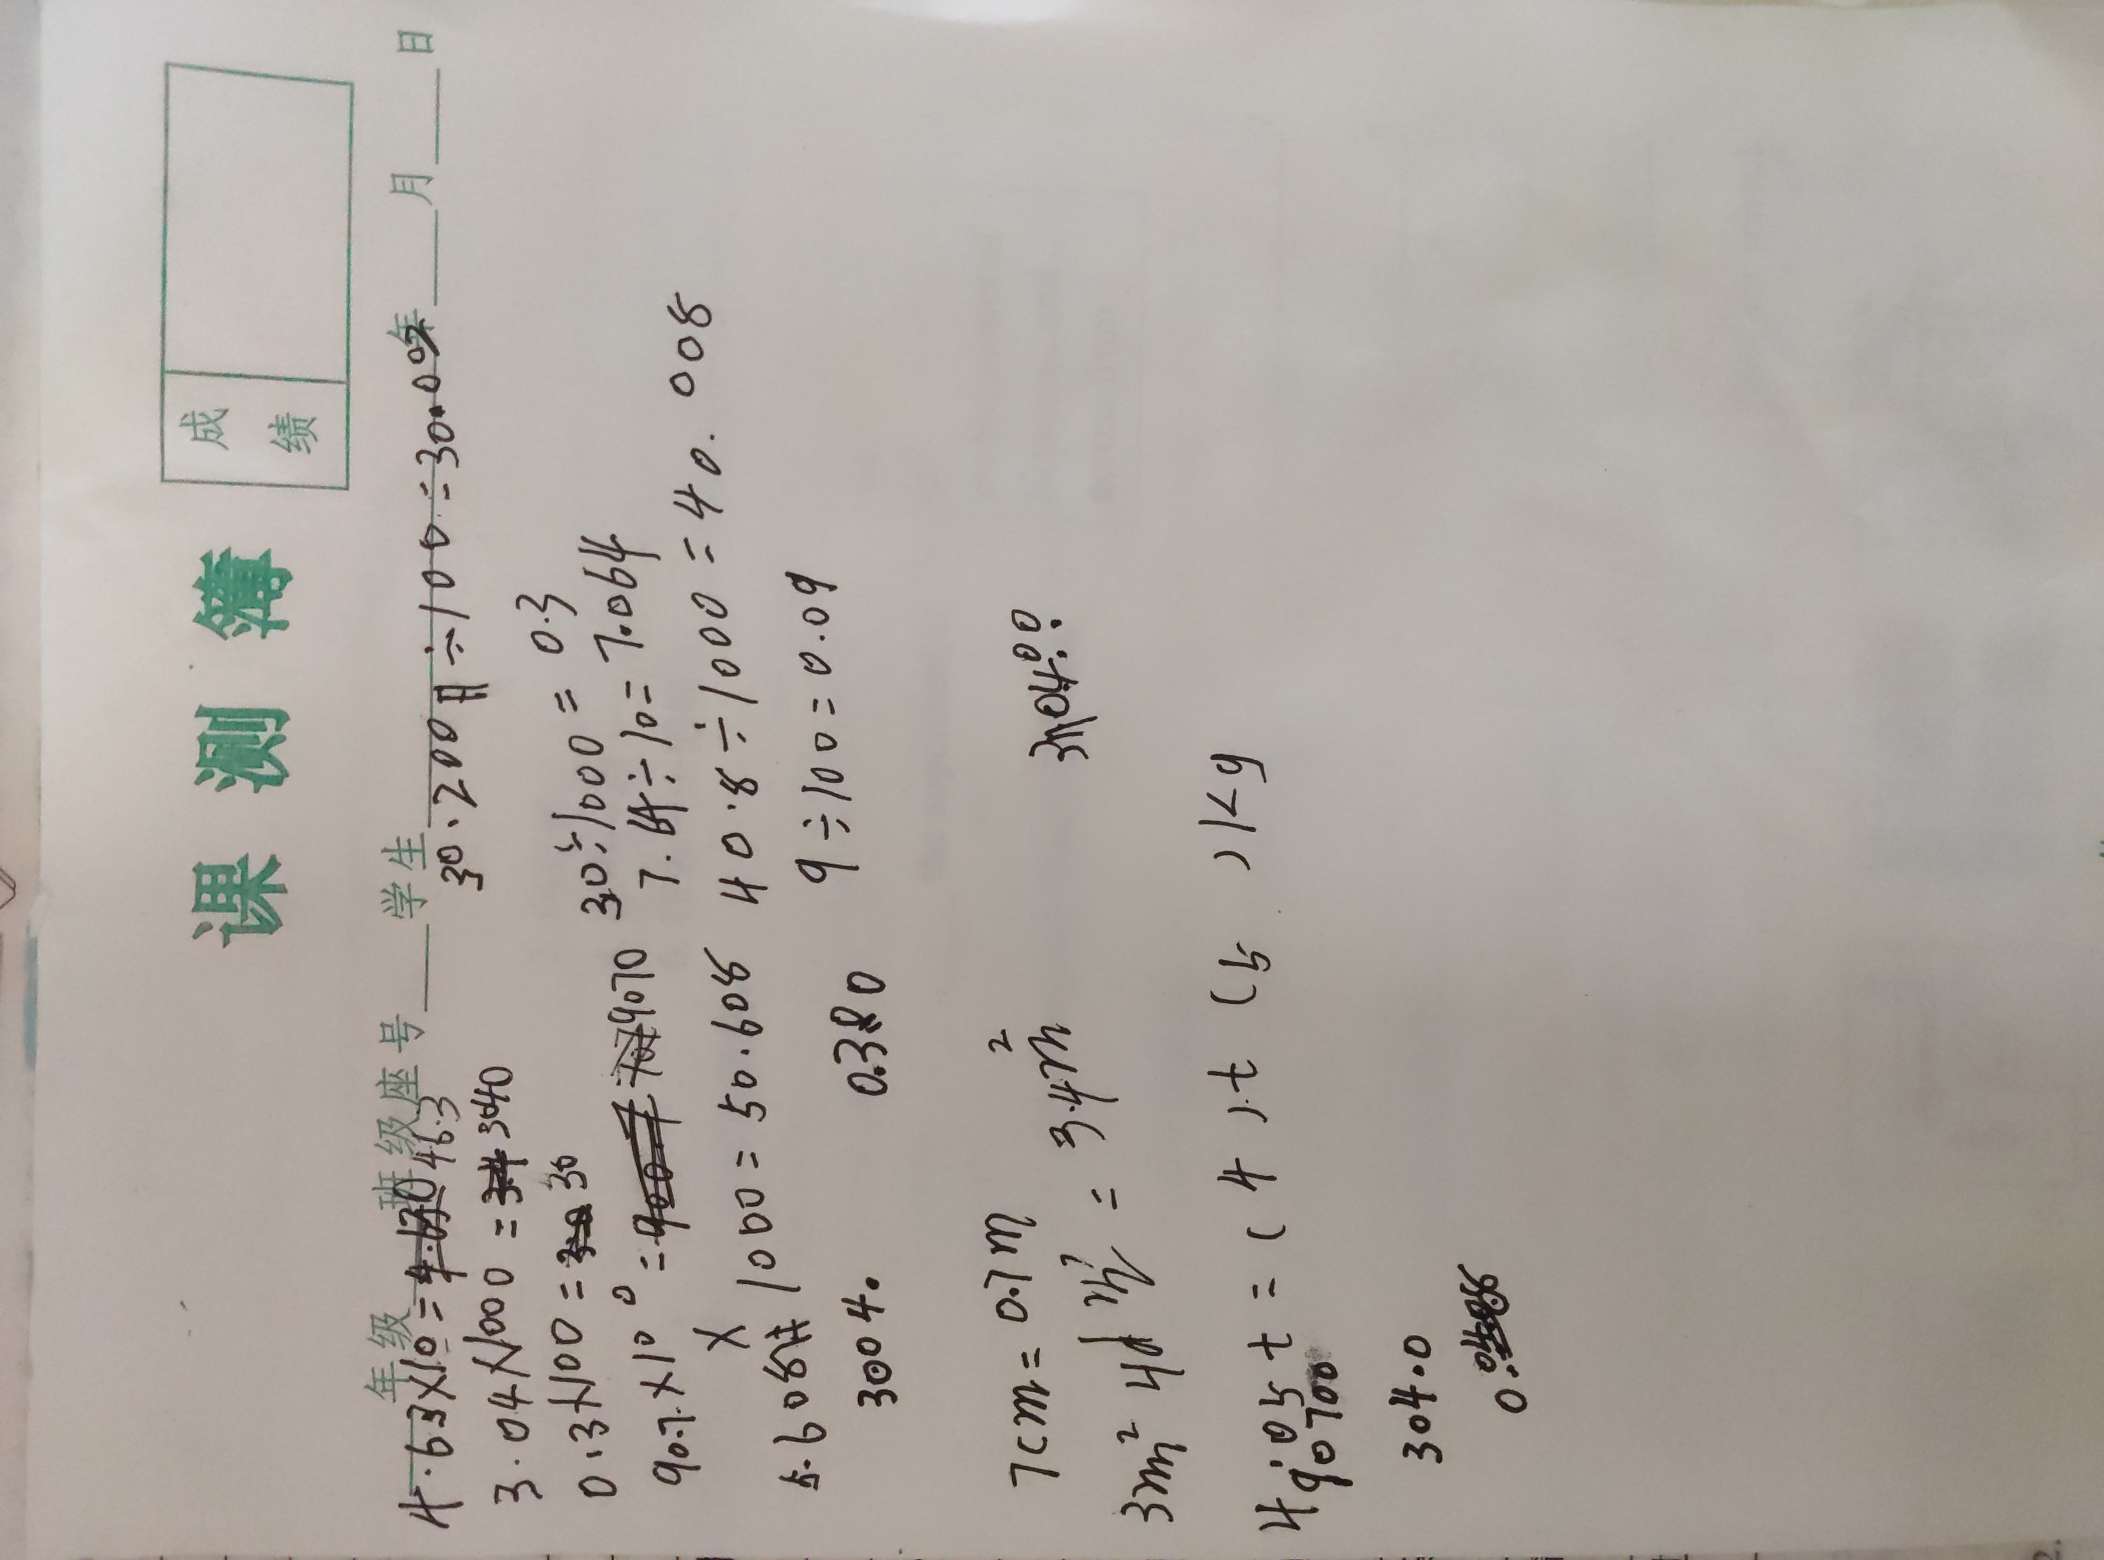 课 测 簿
成绩
年级 班级座号 学生 年 月 日
4.63×10= 46.3
30.2001÷100=30.002
3.04×1000= 3040
30÷1000=0.3
0.3×100= 30
7.64÷10=7.064
90.7×100= 9070
40.8÷1000=40.008
5.608×1000=50.608
9÷100=0.09
3004.
0.380
7cm=0.7m
3m² 4d m²=3.4m²
4.05t=(4)t(5)kg
90700
304.0